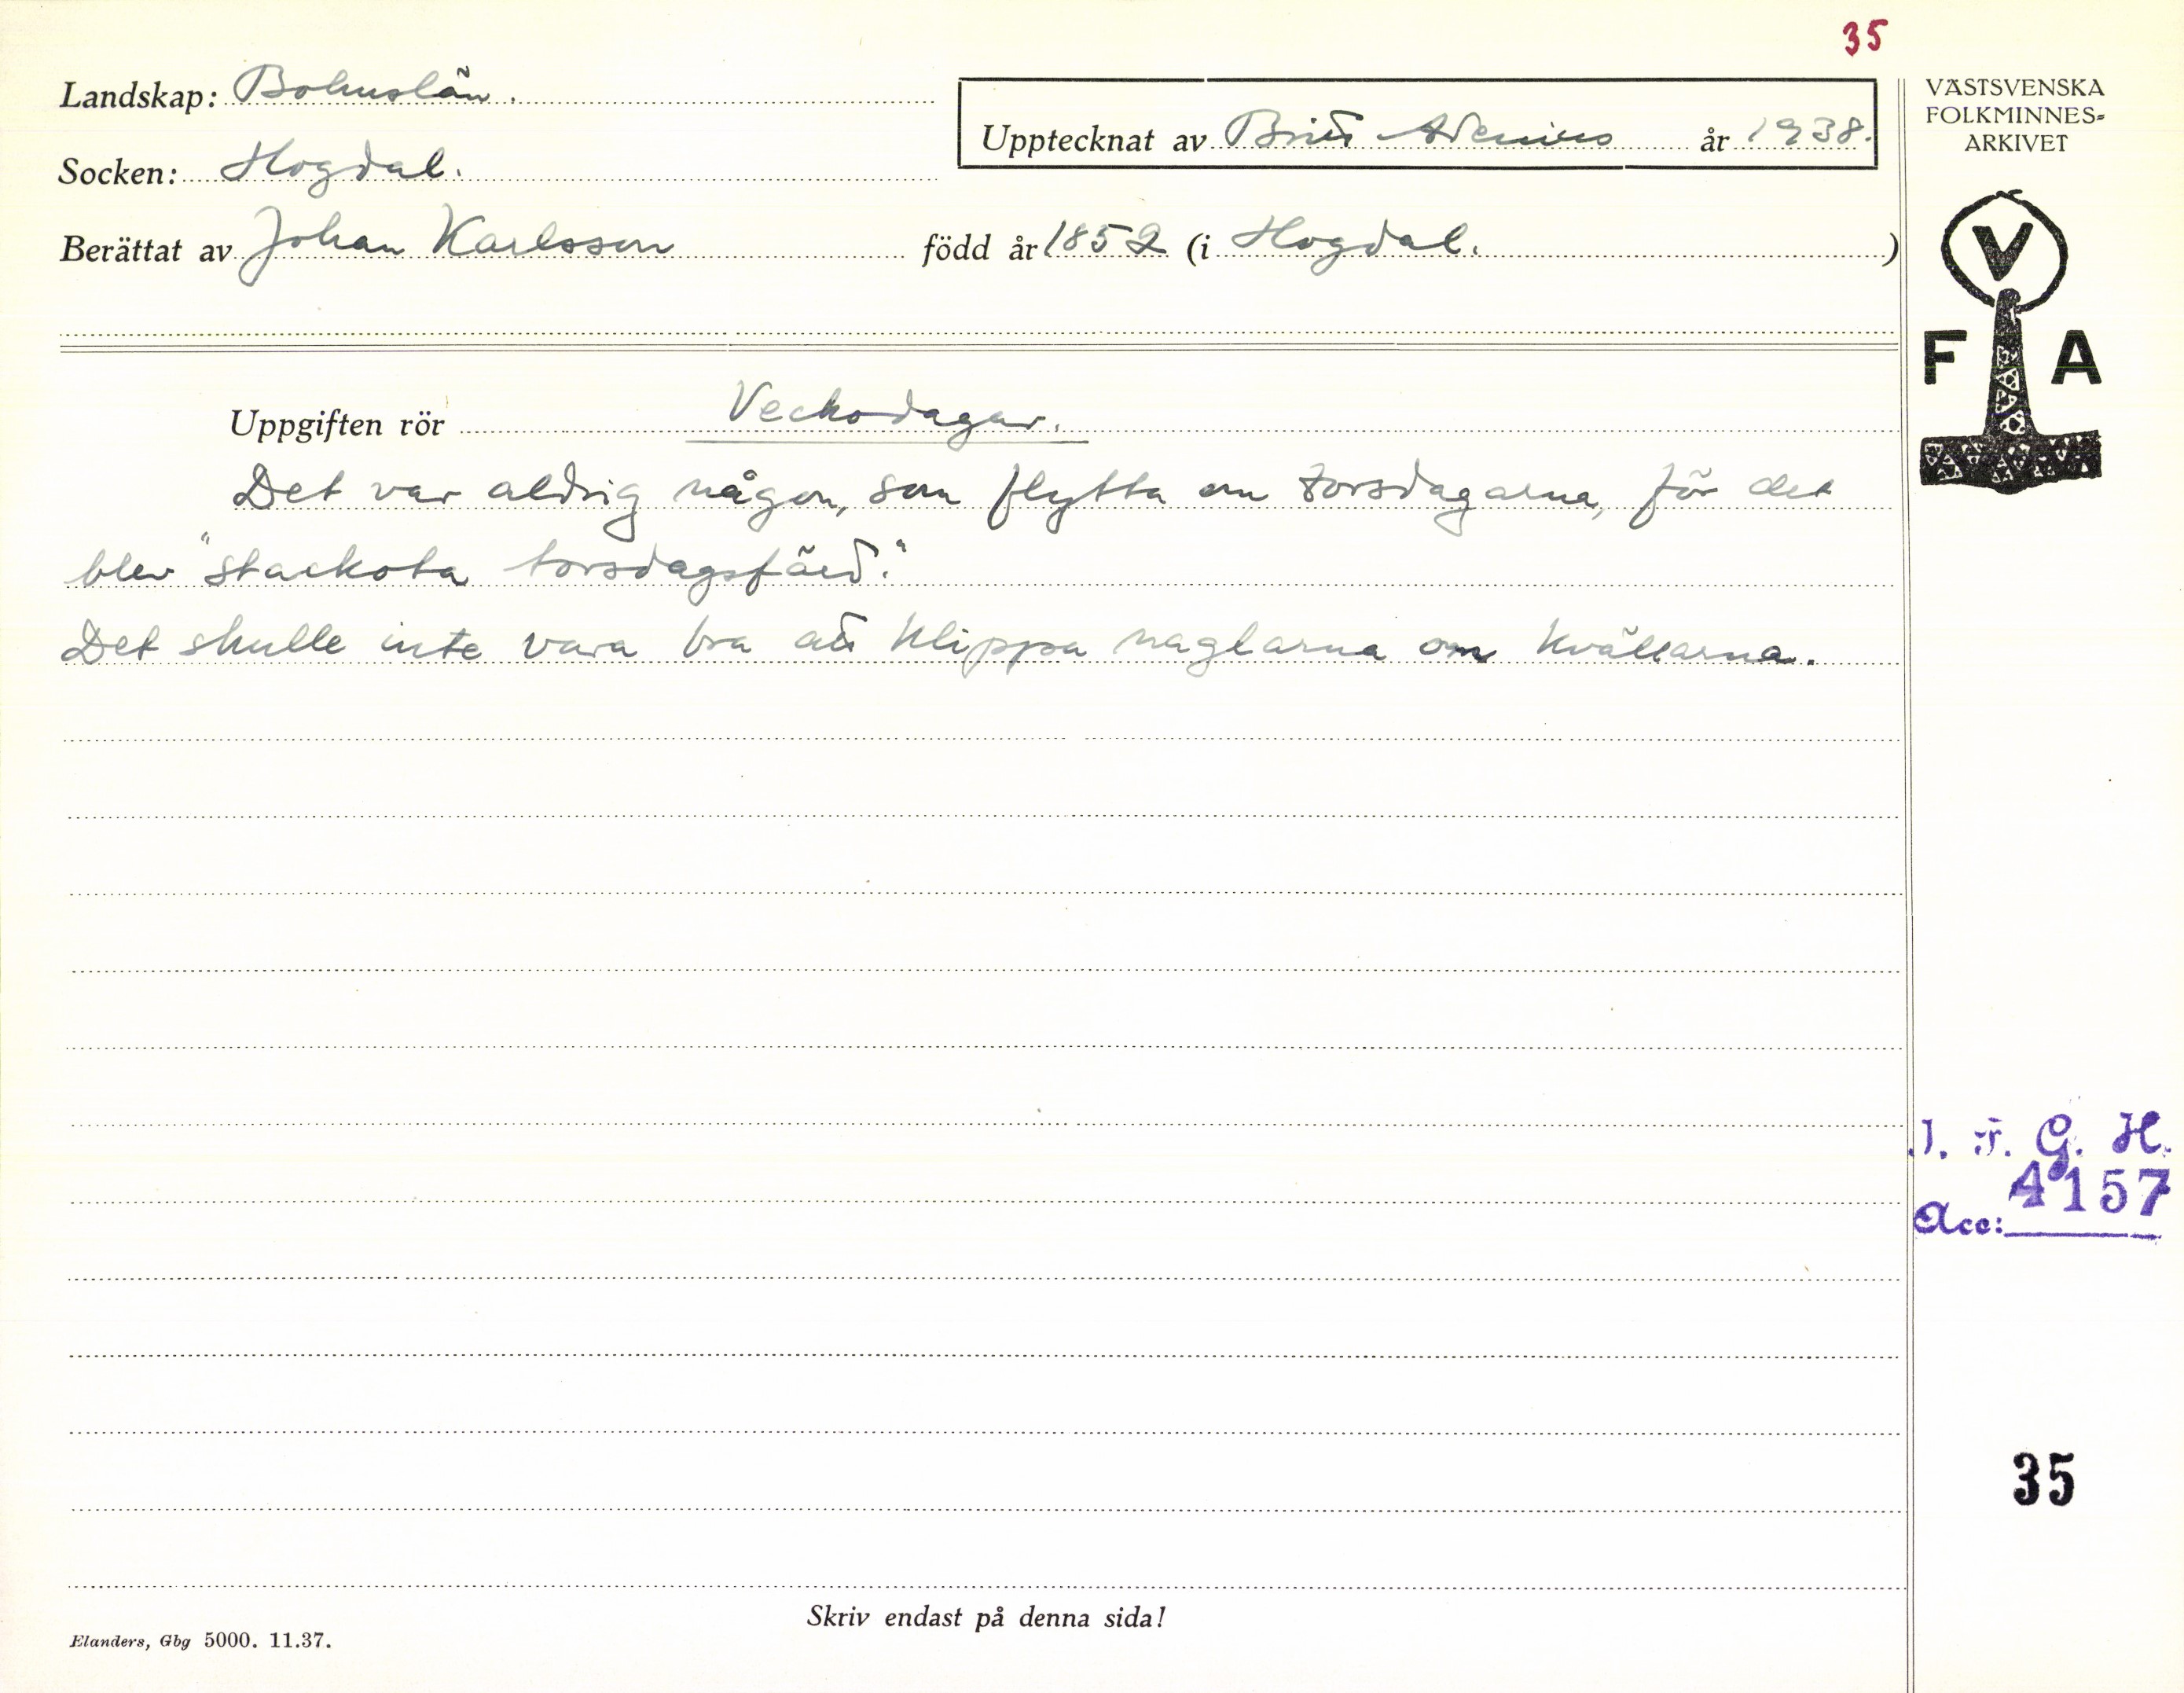 35
Landskap: Bohuslän.
Upptecknat av Britt Adenius år 1938.
Socken: Hogdal.
Berättat av Johan Karlsson född år 1852 (i Hogdal. )
VÄSTSVENSKA
FOLKMINNES-
ARKIVET
V
F A
Uppgiften rör Veckodagar.
Det var aldrig någon, som flytta om torsdagarna, för det
blev "stackota torsdagsfärd."
Det skulle inte vara bra att klippa naglarna om kvällarna.
I. F. G. H.
4157
Acc:
35
Skriv endast på denna sida!
Elanders, Gbg 5000. 11.37.